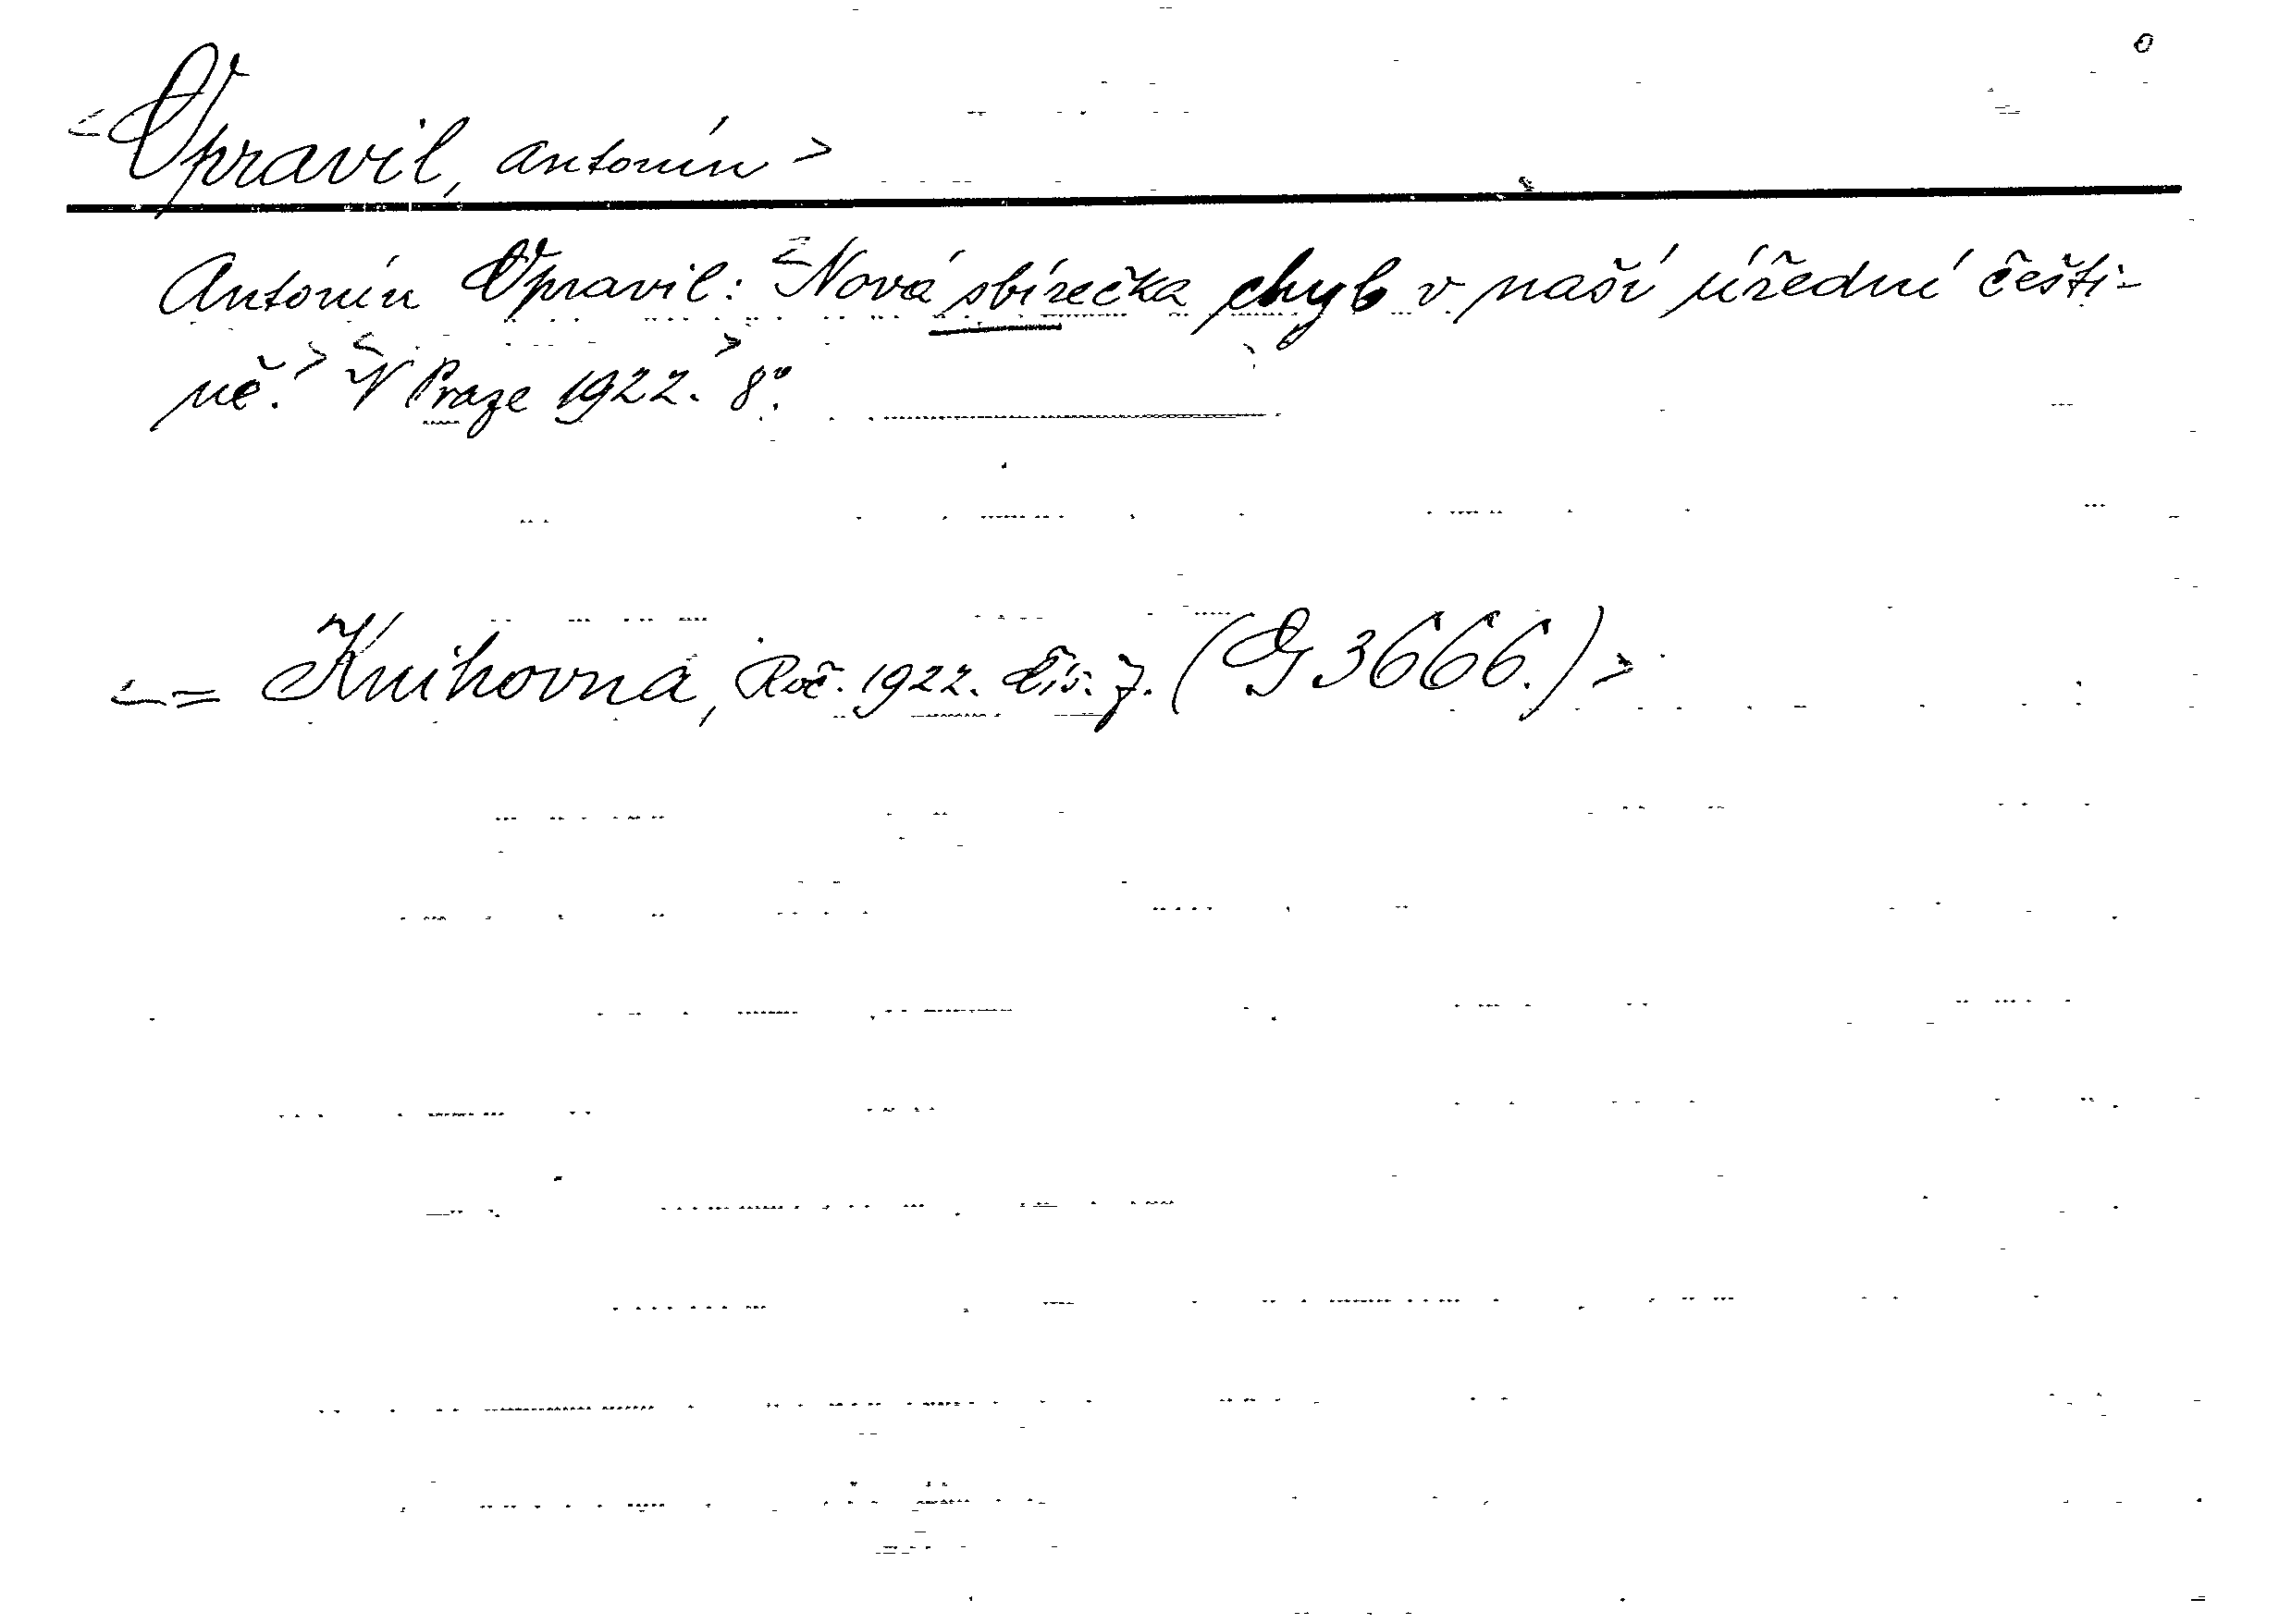 <Opravil, Antonín>
Antonín Opravil: <Nová sbírečka chyb v naší úřední češti-
ně.> <V Praze 1922.> 8°.
<= Knihovna, Roč. 1922. Čís. 7. (G 3666.)>